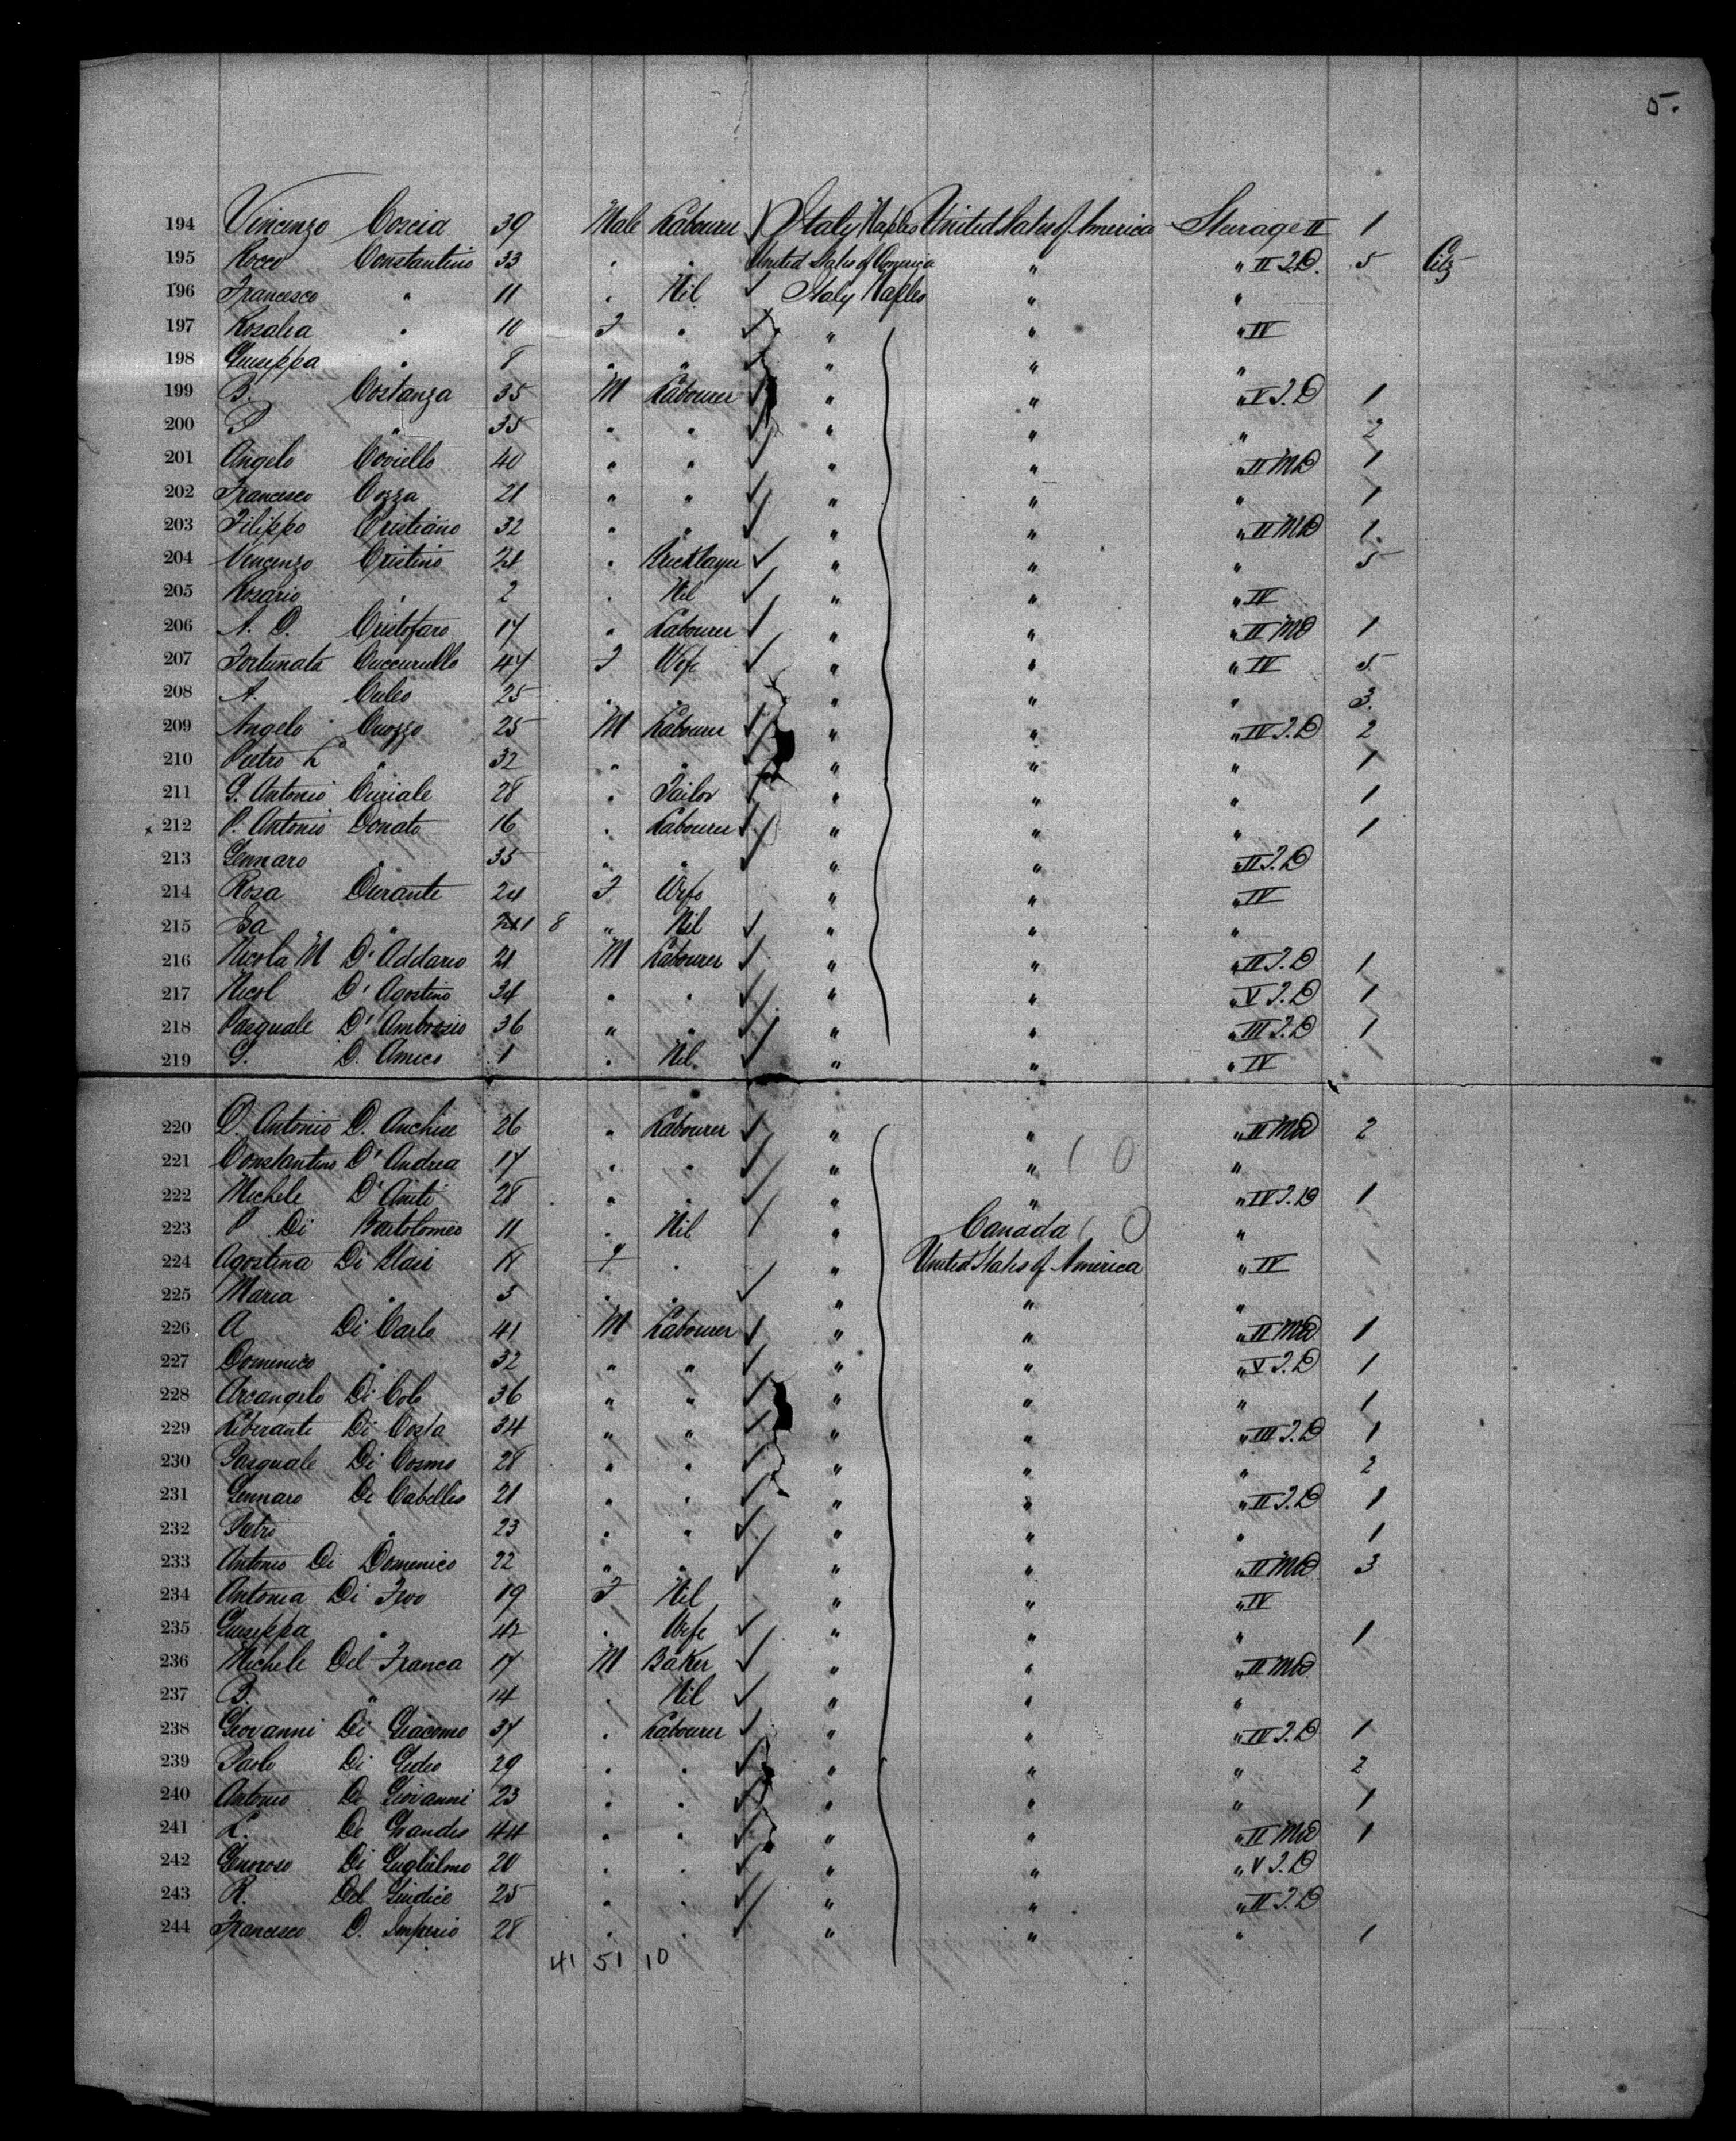 5.
194 Vincenzo Coscia 39 Male Labourer Italy Naples United States of America Steerage II 1
195 Rocco Constantino 33 " " United States of America " " II T.D. 5 Citz
196 Francesco " 11 " Nil Italy Naples " "
197 Rosalia " 10 F " " " " IV
198 Giuseppa " 8 " " " " "
199 B. Costanza 35 M Labourer " " " V T.D 1
200 P " 35 " " " " " 2
201 Angelo Coviello 40 " " " " " II MD 1
202 Francesco Cozza 21 " " " " " 1
203 Filippo Cristiano 32 " " " " " II MD 1.
204 Vincenzo Cristino 24 " Bricklayer " " " 5
205 Rosario " 2 " Nil " " " IV
206 A. D. Cristofaro 17 " Labourer " " " II MD 1
207 Fortunata Cuccurullo 47 F Wife " " " IV 5
208 A. Culeo 25 " " " " " 3.
209 Angelo Cuozzo 25 M Labourer " " " IV T.D 2
210 Pietro L " 32 " " " " " 1
211 G. Antonio Curiale 28 " Tailor " " " 1
212 P. Antonio Donato 16 " Labourer " " " 1
213 Gennaro " 35 " " " " " II T.D
214 Rosa Durante 24 F Wife " " " IV
215 " 8 " Nil " " "
216 Nicola M D'Addario 21 M Labourer " " " II T.D 1
217 Nicol D'Agostino 34 " " " " " V T.D 1
218 Pasquale D'Ambrosio 36 " " " " " III T.D 1
219 G. D. Amico 1 " Nil " " " IV
220 D. Antonio D. Anchise 26 " Labourer " " " II MD 2
221 Constantino D'Andrea 17 " " " " "
222 Michele 28 " " " " " IV T.D 1
223 P. Di Bartolomeo 11 " Nil " Canada "
224 Agostina Di Blasi 18 F " " United States of America " IV
225 Maria " 3 " " " " "
226 A Di Carlo 41 M Labourer " " " II MD 1
227 Domenico " 32 " " " " " V T.D 1
228 Arcangelo Di Cola 36 " " " " " 1
229 Liberante Di Costa 34 " " " " " III T.D 1
230 Pasquale Di Cosmo 28 " " " " " 2
231 Gennaro De Cabelles 21 " " " " " II T.D 1
232 Pietro " 23 " " " " " 1
233 Antonio Di Domenico 22 " " " " " II MD 3
234 Antonia Di 19 F Nil " " " IV
235 Giuseppa " 42 " Wife " " " 1
236 Michele Del Franca 17 M Baker " " " II MD
237 B. " 14 " Nil " " "
238 Giovanni Di Giacomo 37 " Labourer " " " IV T.D 1
239 Paolo Di 29 " " " " " 2
240 Antonio De Giovanni 23 " " " " " 1
241 L. De Grandis 44 " " " " " II MD 1
242 Generoso Di Guglielmo 20 " " " " " V T.D
243 R. Del Giudice 25 " " " " " II T.D
244 Francesco D. Imperio 28 " " " " " 1
41 51 10